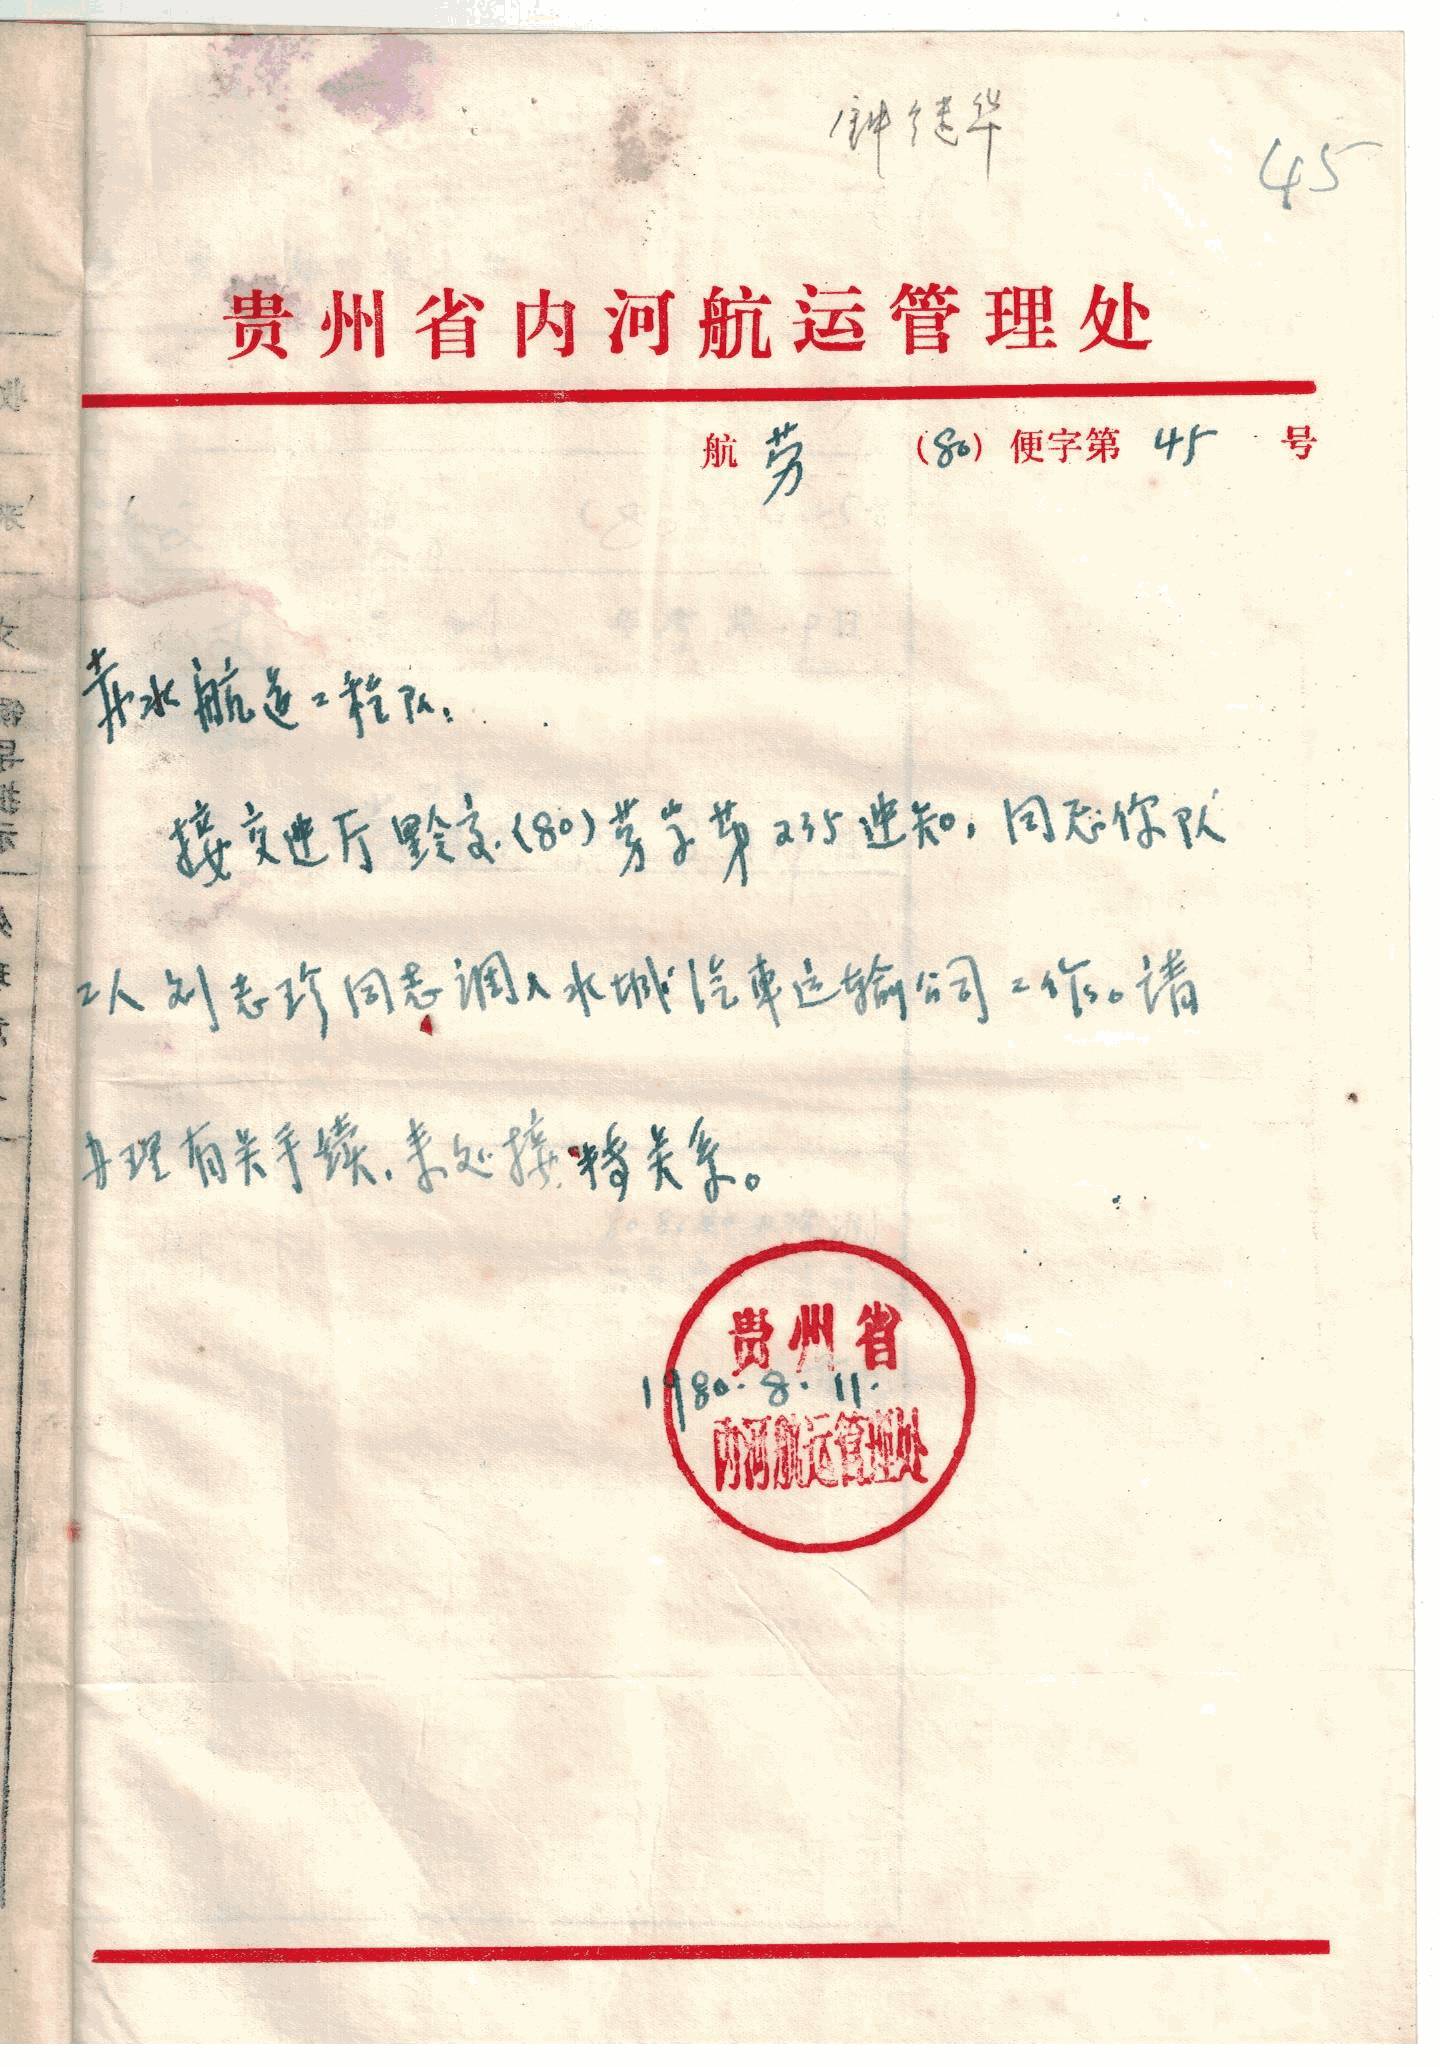 钟继华
45
贵州省内河航运管理处
航劳(80)便字第45号
赤水航道工程队:
接交通厅黔交(80)劳字第235通知,同意你队
工人刘志珍同志调入水城汽車运输公司工作。请
办理有关手续,来处接转关系。
贵州省
1980.8.11.
内河航运管理处